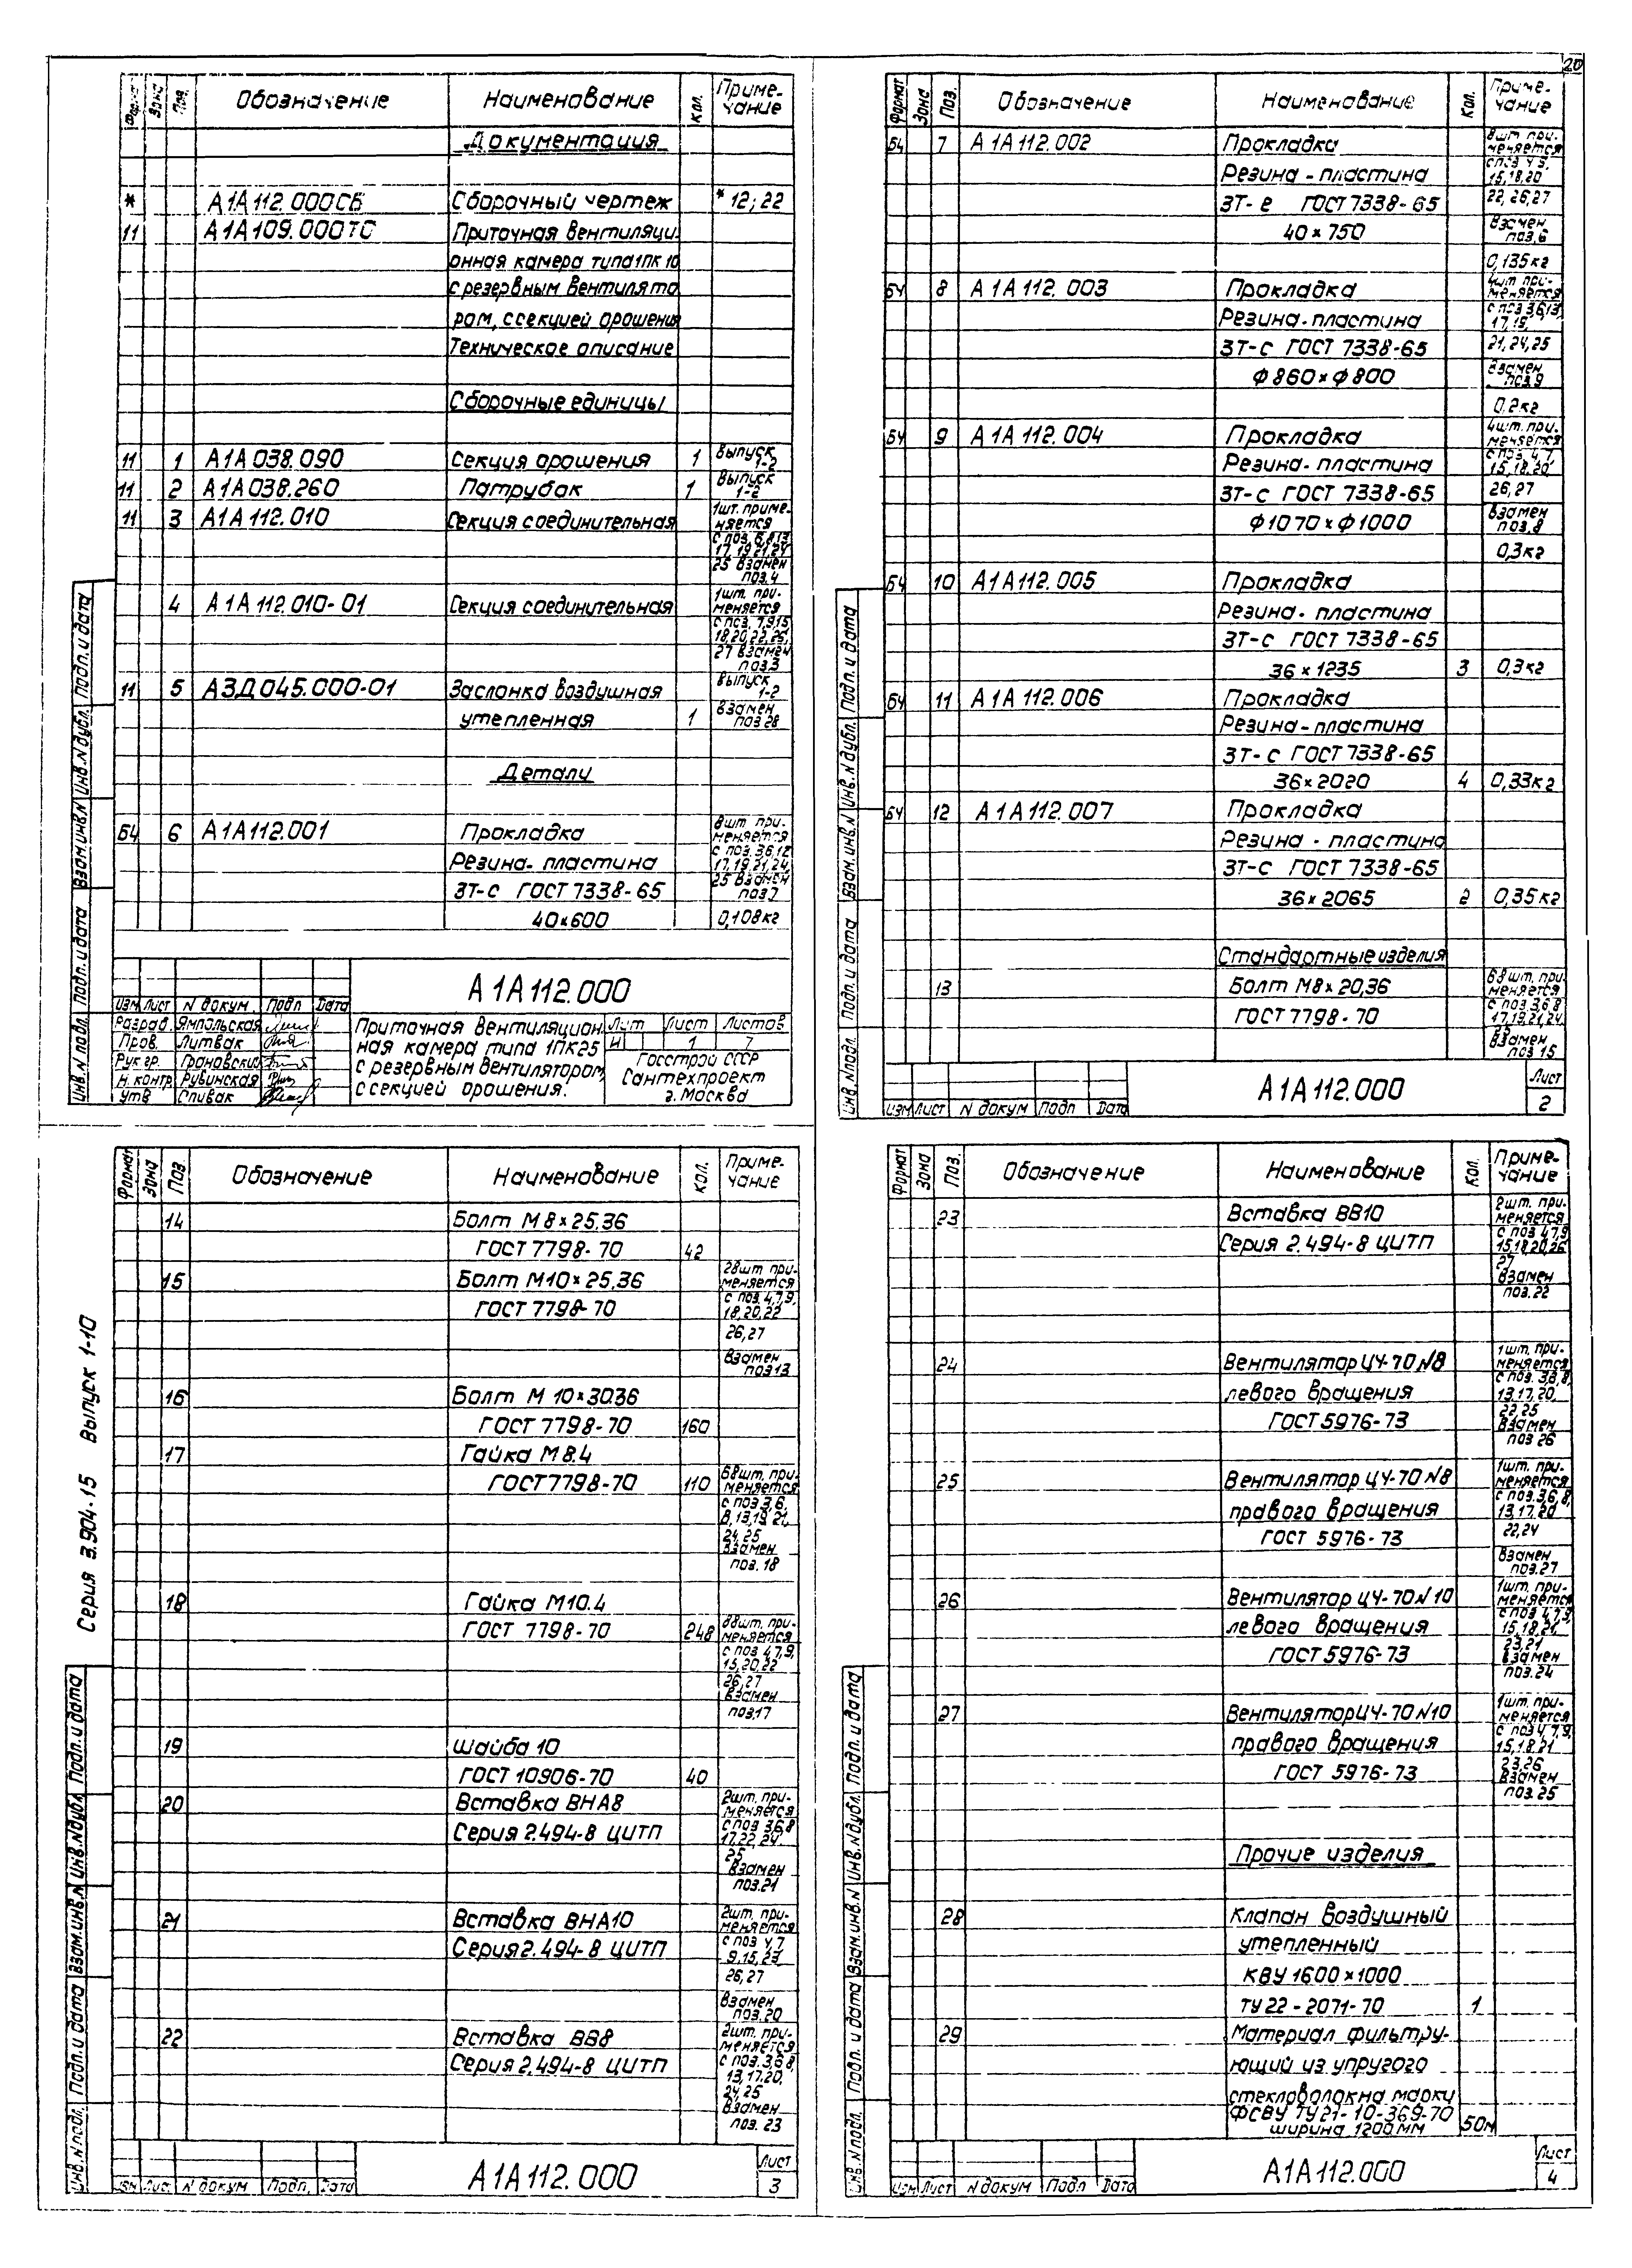 20
Формат Зона Поз. Обозначение Наименование Кол. Примечание
Документация
* А1А112.000СБ Сборочный чертеж *12; 22
11 А1А109.000ТО Приточная вентиляци
онная камера типа 1ПК 10
с резервным вентилято
ром, с секцией орошения
Техническое описание
Сборочные единицы
11 1 А1А038.090 Секция орошения 1 Выпуск 1-2
11 2 А1А038.260 Патрубок 1 Выпуск 1-2
11 3 А1А112.010 Секция соединительная 1шт. приме-
няется
с поз. 6,8,13
17, 19,21,24
25 взамен
поз.4
4 А1А112.010-01 Секция соединительная 1шт. при-
меняется
с поз. 7,9,15
18,20,22,26,
27 взамен
поз3
11 5 АЗД045.000-01 Заслонка воздушная Выпуск 1-2
утепленная 1 взамен поз 28
Детали
БЧ 6 А1А112.001 Прокладка 8шт. при-
меняется
Резина-пластина с поз. 3,6,12
17,19,21,24,
3Т-с ГОСТ 7338-65 25 взамен
поз7
40х600 0,108кг
А1А112.000
Изм Лист N докум. Подп Дата
Разраб. Ямпольская
Пров. Литвак
Рук гр. Грановский
Н. контр. Рубинская
Утв Спивак
Приточная вентиляцион-
ная камера типа 1ПК25
с резервным вентилятором,
с секцией орошения.
Лит Лист Листов
И 1 7
Госстрой СССР
Сантехпроект
г. Москва
Инв. N подл. Подп. и дата Взам.инв.N Инв.N дубл. Подп. и дата
Формат Зона Поз. Обозначение Наименование Кол. Примечание
БЧ 7 А1А112.002 Прокладка 8шт при-
меняется
Резина-пластина с поз 4 9,
15,18,20
3Т-с ГОСТ 7338-65 22, 26,27
40×750 взамен
поз.6
0,135кг
БЧ 8 А1А112.003 Прокладка 4шт при-
меняется
Резина-пластина с поз 3,6,13,
17,19,
3Т-с ГОСТ 7338-65 21,24,25
Ф860×Ф800 взамен
поз9
0,2кг
БЧ 9 А1А112.004 Прокладка 4шт. при-
меняется
Резина-пластина с поз. 4,7,
15,18,20,
3Т-с ГОСТ 7338-65 26,27
Ф1070×Ф1000 взамен
поз.8
0,3кг
БЧ 10 А1А112.005 Прокладка
Резина-пластина
3Т-с ГОСТ 7338-65
36×1235 3 0,3кг
БЧ 11 А1А112.006 Прокладка
Резина-пластина
3Т-с ГОСТ 7338-65
36×2020 4 0,33кг
БЧ 12 А1А112.007 Прокладка
Резина-пластина
3Т-с ГОСТ 7338-65
36×2065 2 0,35кг
Стандартные изделия
13 Болт М8×20,36 68шт. при-
меняется
ГОСТ 7798-70 с поз 3,6,8
17,19,21,24,
25
взамен
поз 15
Изм Лист N докум Подп Дата А1А112.000 Лист 2
Инв. N подл. Подп. и дата Взам.инв.N Инв.N дубл. Подп. и дата
Серия 3.904-15 Выпуск 1-10
Формат Зона Поз Обозначение Наименование Кол. Примечание
14 Болт М8×25,36
ГОСТ 7798-70 42
15 Болт М10×25,36 28шт при-
меняется
ГОСТ 7798-70 с поз. 4,7,9,
18,20,22
26,27
взамен
поз13
16 Болт М 10×30.36
ГОСТ 7798-70 160
17 Гайка М8.4
ГОСТ 7798-70 110 68шт. при-
меняется
с поз 3,6,
8,13,19,21,
24,25
взамен
поз. 18
18 Гайка М10.4
ГОСТ 7798-70 248 88шт. при-
меняется
с поз 4,7,9,
15,20,22
26,27
взамен
поз17
19 Шайба 10
ГОСТ 10906-70 40
20 Вставка ВНА8 2шт. при-
меняется
Серия 2.494-8 ЦИТП с поз 3,6,8
17,22,24,
25
взамен
поз.21
21 Вставка ВНА10 2шт. при-
меняется
Серия 2.494-8 ЦИТП с поз 4,7
9,15,23
26,27
взамен
поз.20
22 Вставка ВВ8 2шт. при-
меняется
Серия 2.494-8 ЦИТП с поз. 3,6,8,
13,17,20,
24,25
взамен
поз. 23
Изм Лист N докум Подп. Дата А1А112.000 Лист 3
Инв. N подл. Подп. и дата Взам.инв.N Инв.N дубл. Подп. и дата
Формат Зона Поз. Обозначение Наименование Кол. Примечание
23 Вставка ВВ10 2шт. при-
меняется
Серия 2.494-8 ЦИТП с поз 4,7,9
15,18,20,26
27
взамен
поз.22
24 Вентилятор Ц4-70 N8 1шт. при-
меняется
левого вращения с поз. 3,6,8,
13,17,20,
ГОСТ 5976-73 22,25
взамен
поз 26
25 Вентилятор Ц4-70 N8 1шт. при-
меняется
правого вращения с поз.3,6,8,
13,17,20
ГОСТ 5976-73 22,24
взамен
поз.27
26 Вентилятор Ц4-70 N10 1шт. при-
меняется
левого вращения с поз 4,7,9
15,18,21,
ГОСТ 5976-73 23,21
взамен
поз.24
27 Вентилятор Ц4-70 N10 1шт. при-
меняется
правого вращения с поз 4,7,9,
15,18,21
ГОСТ 5976-73 23,26
взамен
поз.25
Прочие изделия
28 Клапан воздушный
утепленный
КВУ 1600×1000
ТУ 22-2071-70 1
29 Материал фильтру-
ющий из упругого
стекловолокна марки
ФСВУ ТУ21-10-369-70
ширина 1200мм 50м
Изм Лист N докум Подп Дата А1А112.000 Лист 4
Инв. N подл. Подп. и дата Взам.инв.N Инв.N дубл. Подп. и дата